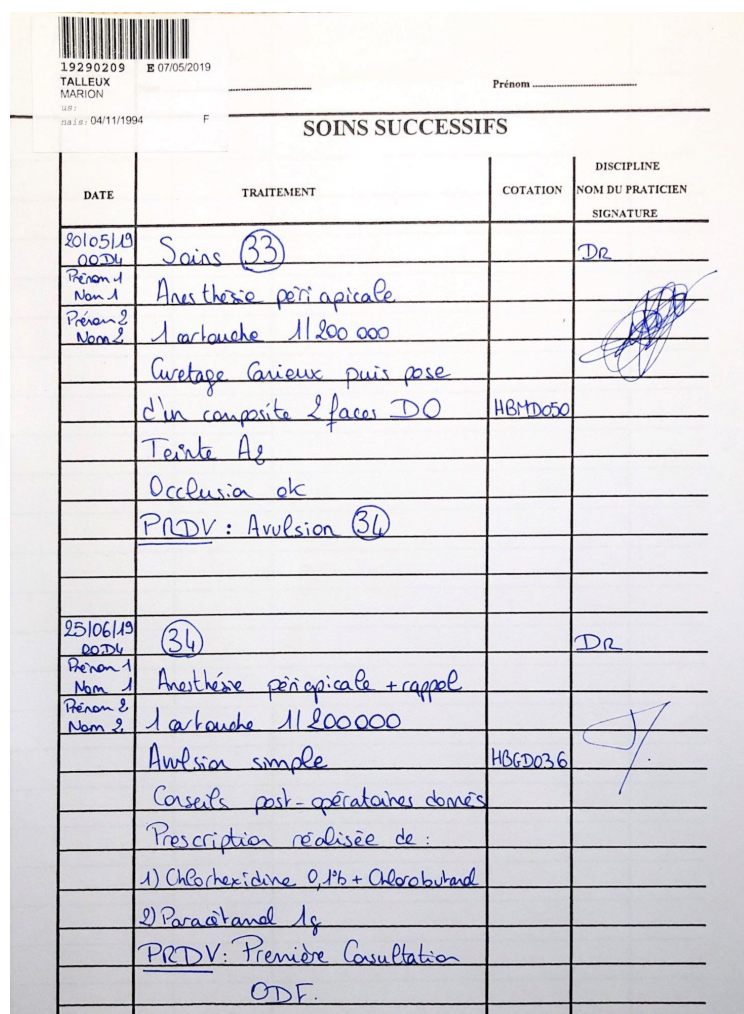 19290209 E 07/05/2019
TALLEUX
MARION
us:
nais: 04/11/1994 F
Prénom
SOINS SUCCESSIFS
DATE TRAITEMENT COTATION DISCIPLINE NOM DU PRATICIEN SIGNATURE
20/05/19 Soins 33 DR
OOD4
Prénom 1 Anesthésie péri apicale
Nom 1
Prénom 2 1 cartouche 1/200 000
Nom 2
Curetage Carieux puis pose
d'un composite 2 faces DO HBMD050
Teinte A2
Occlusion ok
PRDV : Avulsion 34
25/06/19 34 DR
OOD4
Prénom 1 Anesthésie périapicale + rappel
Nom 1
Prénom 2 1 cartouche 1/200000
Nom 2
Avulsion simple HBGD036
Conseils post-opératoires donnés
Prescription réalisée de :
1) Chlorhexidine 0,1% + Chlorobutanol
2) Paracétamol 1g
PRDV : Première Consultation
ODF.